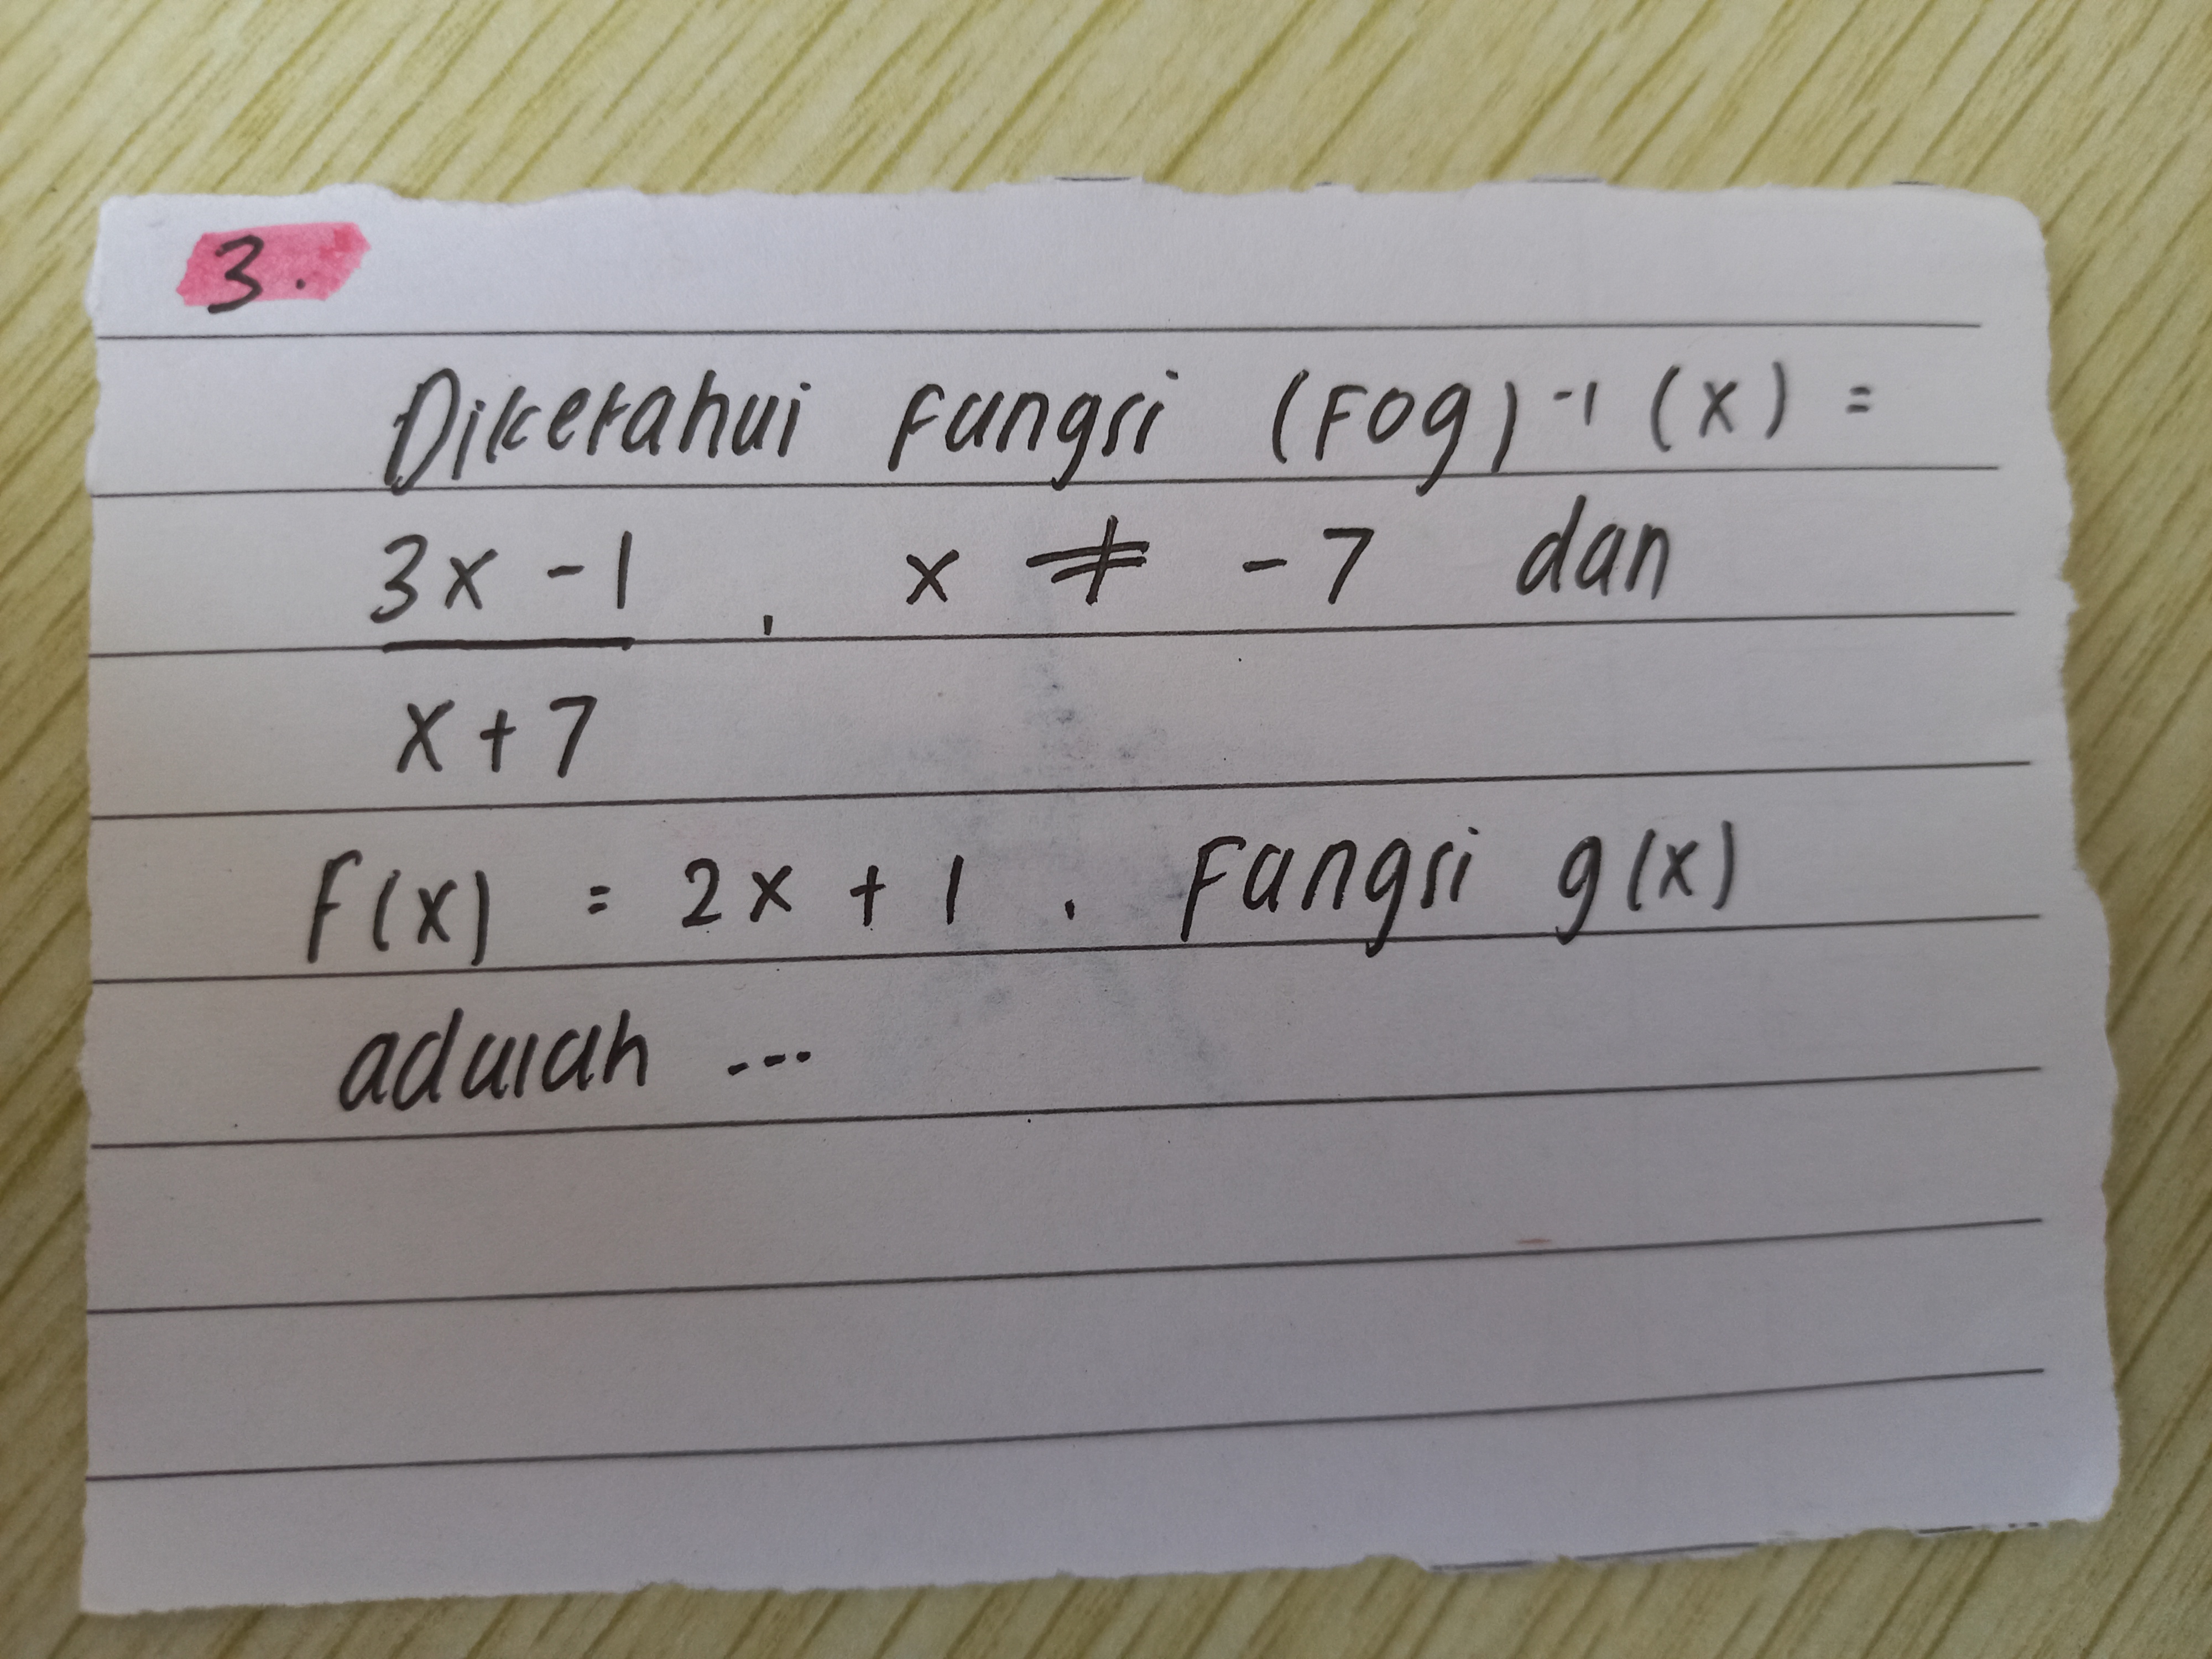 3.
Diketahui Fungsi (Fog)⁻¹ (x) =
3x - 1 , x ≠ -7 dan
x + 7
F(x) = 2x + 1 . Fungsi g(x)
adalah ...